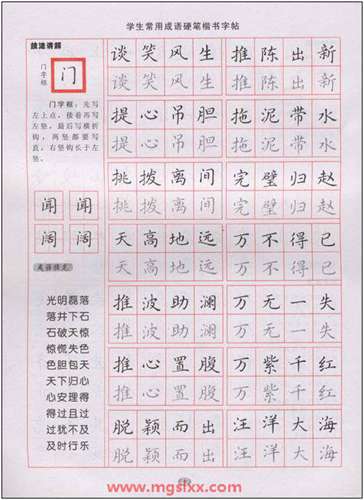 学生常用成语硬笔楷书字帖
技法讲解
门字框
门
门字框：先写
左上点，接着再写
左竖，最后写横折
钩，两竖都要写
直，右竖钩长于左
竖。
闻 闻
阔 阔
光明磊落
落井下石
石破天惊
惊慌失色
色胆包天
天下归心
心安理得
得过且过
过犹不及
及时行乐
谈笑风生 推陈出新
谈笑风生 推陈出新
提心吊胆 拖泥带水
提心吊胆 拖泥带水
挑拨离间 完璧归赵
挑拨离间 完璧归赵
天高地远 万不得已
天高地远 万不得已
推波助澜 万无一失
推波助澜 万无一失
推心置腹 万紫千红
推心置腹 万紫千红
脱颖而出 汪洋大海
脱颖而出 汪洋大海
www.mgslxx.com